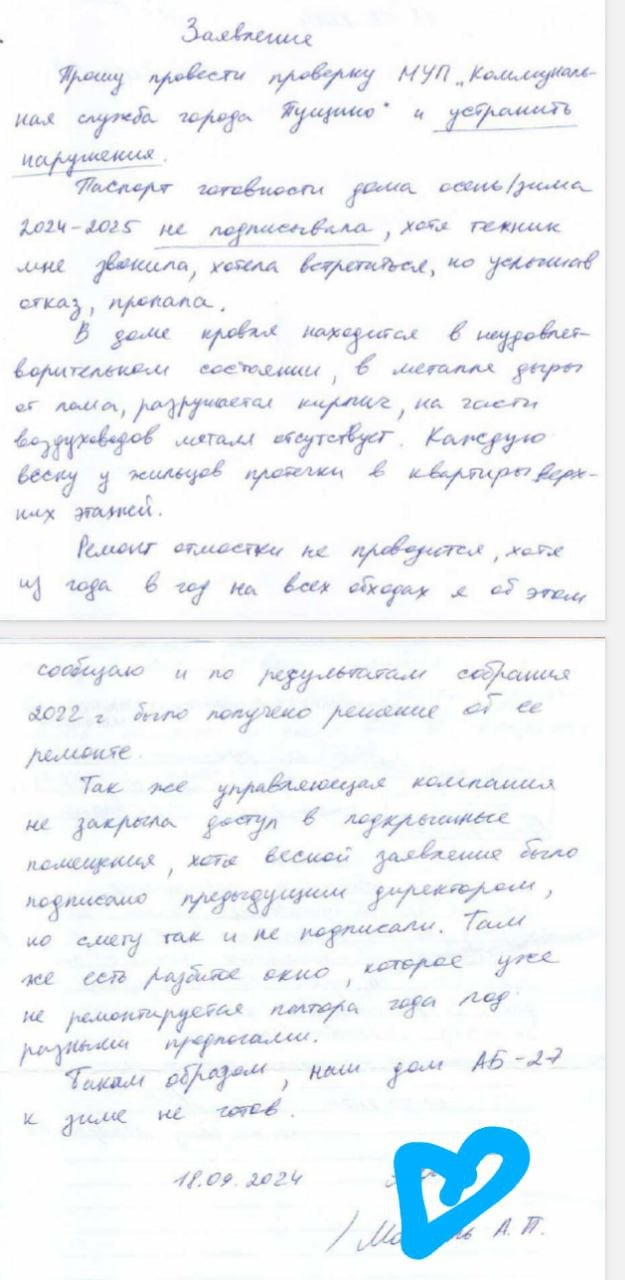 Заявление
Прошу провести проверку МУП „Коммуналь-
ная служба города Пущино" и устранить
нарушения.
Паспорт готовности дома осень/зима
2024-2025 не подписывала, хотя техник
мне звонила, хотела встретиться, но услышав
отказ, пропала.
В доме кровля находится в неудовлет-
ворительном состоянии, в металле дыры
от лома, разрушается кирпич, на части
воздуховодов металл отсутствует. Каждую
весну у жильцов протечки в квартиры верх-
них этажей.
Ремонт отмостки не проводится, хотя
из года в год на всех обходах я об этом
сообщаю и по результатам собрания
2022 г было получено решение об ее
ремонте.
Так же управляющая компания
не закрыла доступ в подкрышные
помещения, хотя весной заявление было
подписано предыдущим директором,
но смету так и не подписали. Там
же есть разбитое окно, которое уже
не ремонтируется полтора года под
разными предлогами.
Таким образом, наш дом АБ-27
к зиме не готов.
18.09.2024
А.П.